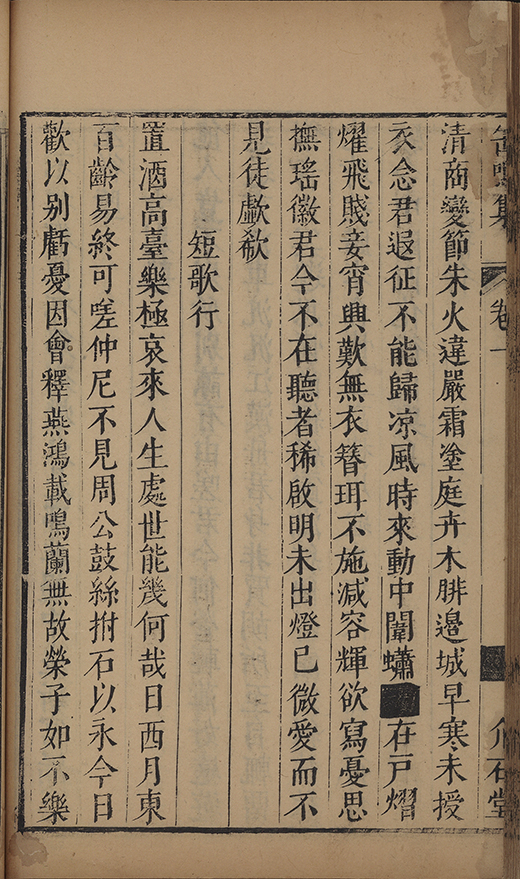 鳴集 卷一 介石堂
清商變節朱火違嚴霜塗庭卉木腓邊城早寒未授
衣念君遐征不能歸凉風時來動中闈蠨在戶熠
燿飛賤妾宵興歎無衣簪珥不施減容輝欲寫憂思
撫瑤徽君今不在聽者稀啟明未出燈已微愛而不
見徒歔欷
短歌行
置酒高臺樂極哀來人生處世能幾何哉日西月東
百齡易終可嗟仲尼不見周公鼓絲拊石以永今日
歡以别虧憂因會釋燕鴻載鳴蘭無故榮子如不樂